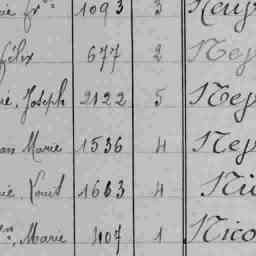 ie frois 1093 3 Ney
félix 677 2 Ney
ie, Joseph 2122 5 Ney
an Marie 1536 4 Ney
ie Louis 1663 4 Ni
Marie 407 1 Nico